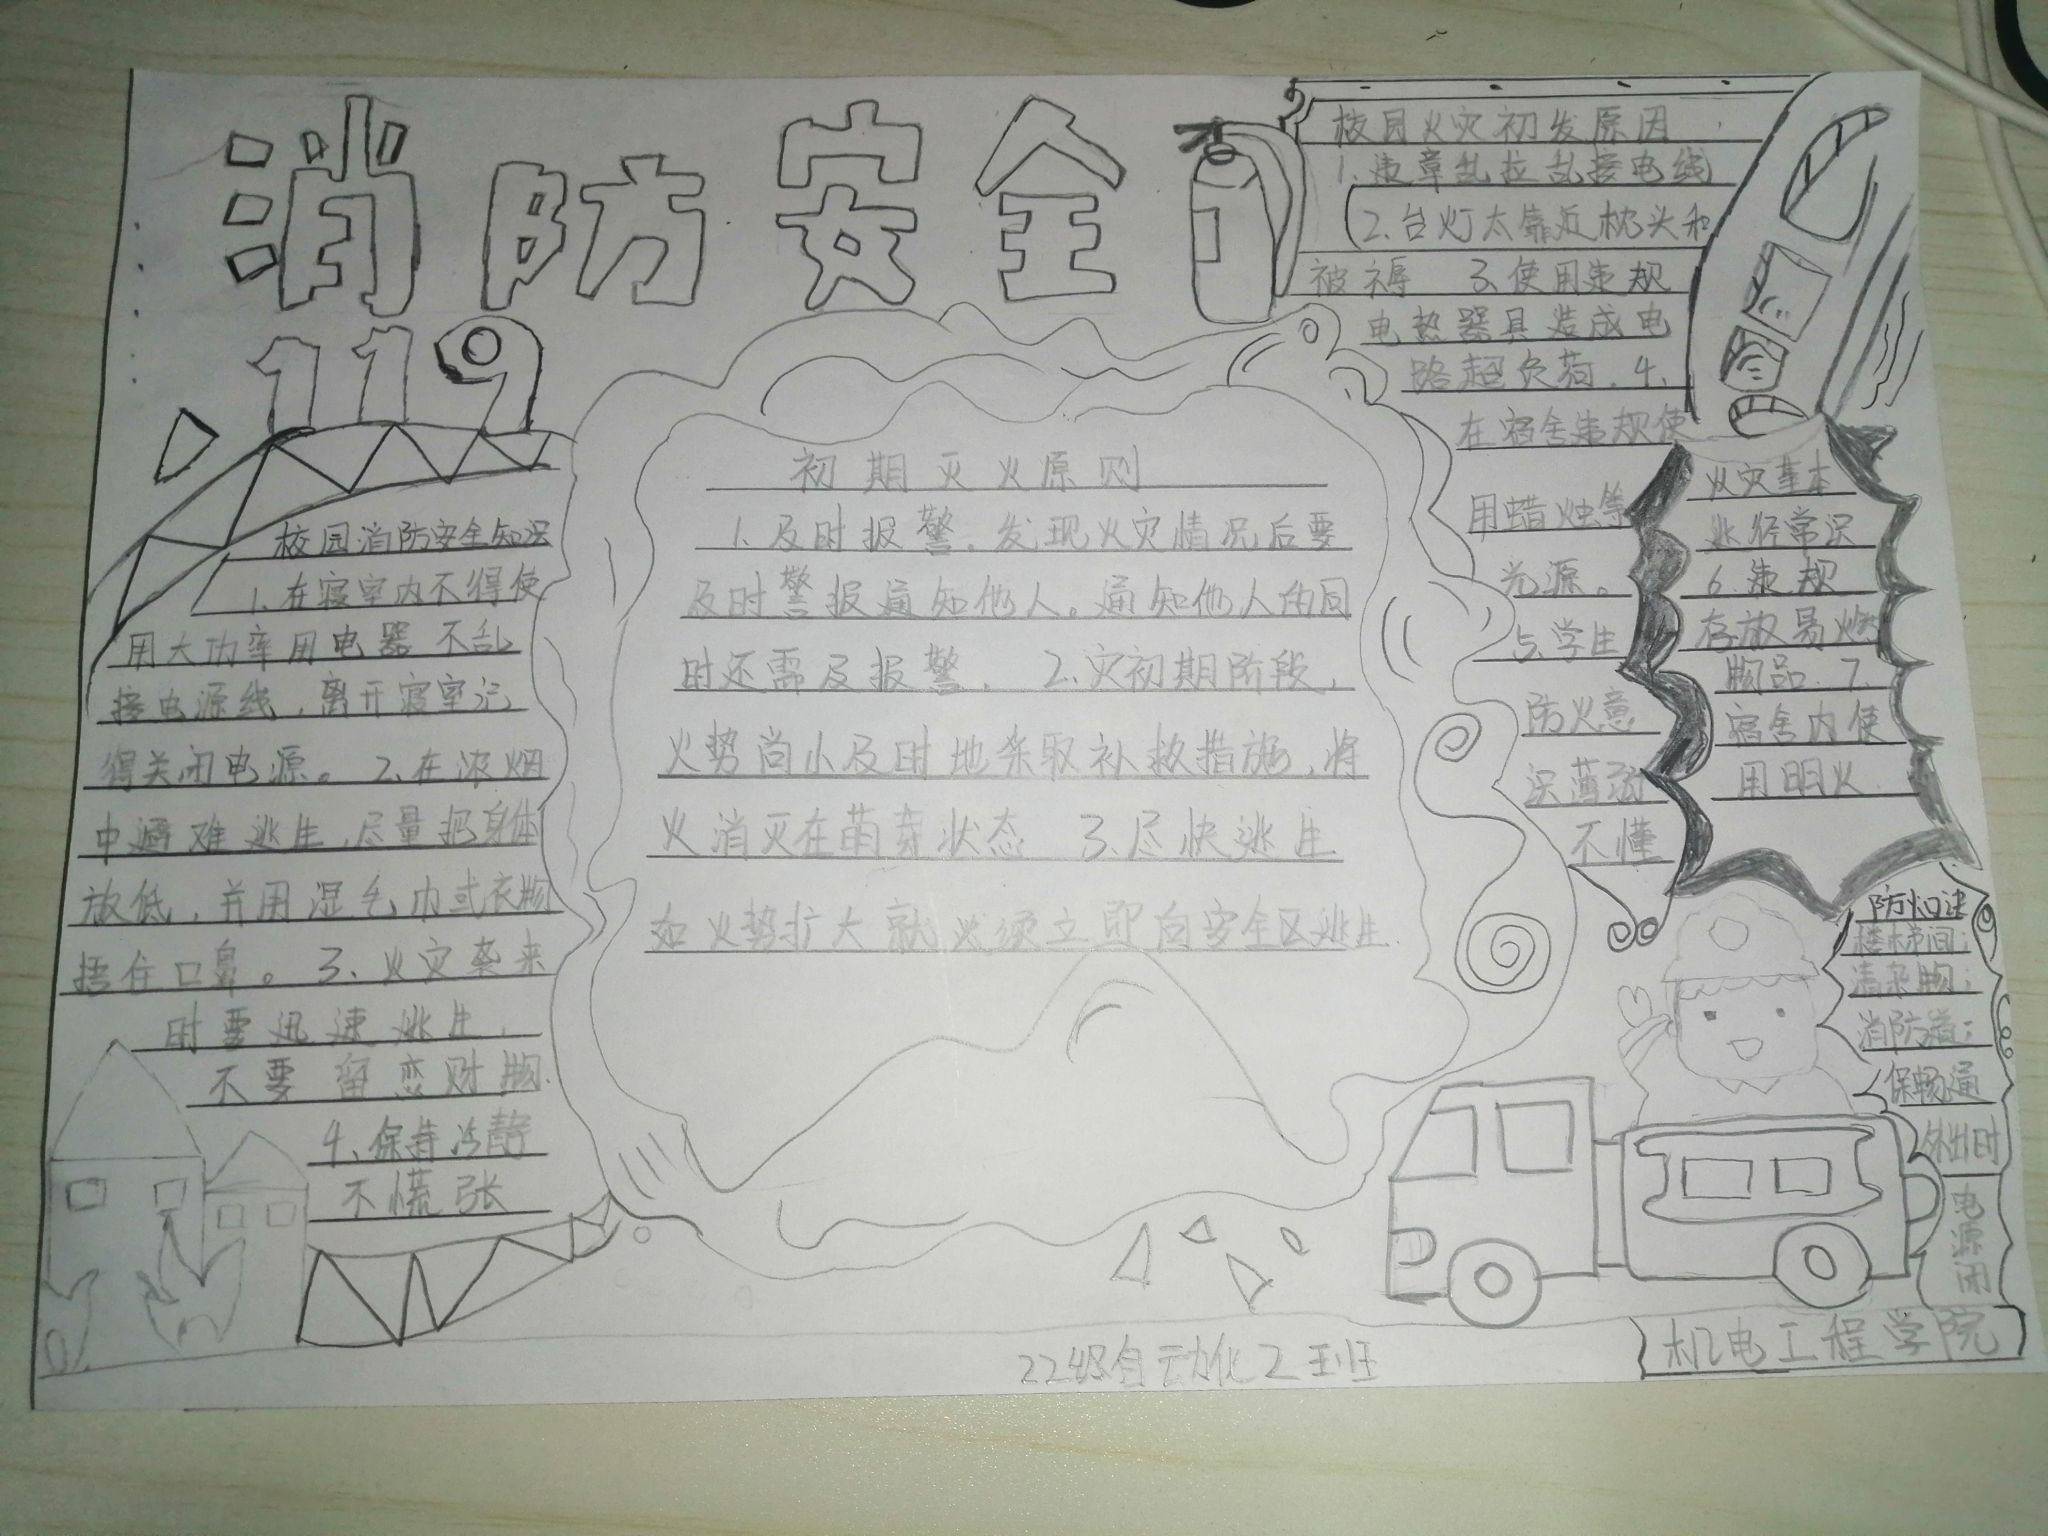 消防安全
119
校园消防安全知识
1、在寝室内不得使
用大功率用电器 不乱
接电源线，离开寝室记
得关闭电源。2、在浓烟
中遇难逃生，尽量把身体
放低，并用湿毛巾或衣物
捂住口鼻。3、火灾袭来
时要迅速逃生，
不要留恋财物.
4、保持冷静
不慌张
初期灭火原则
1、及时报警，发现火灾情况后要
及时警报通知他人。通知他人的同
时还需及报警， 2、灾初期阶段，
火势尚小及时地采取补救措施，将
火消灭在萌芽状态 3、尽快逃生
如火势扩大就必须立即向安全区逃生.
校园火灾初发原因
1、违章乱拉乱接电线
2、台灯太靠近枕头和
被褥 3、使用违规
电热器具造成电
路超负荷. 4、
在宿舍违规使
用蜡烛等
光源。
5、学生
防火意
识薄弱
不懂
火灾基本
逃径常识
6.违规
存放易燃
物品. 7.
宿舍内使
用明火.
防火口诀
楼梯间;
清杂物;
消防道;
保畅通
外出时
电
源
闭
22级自动化2班
机电工程学院